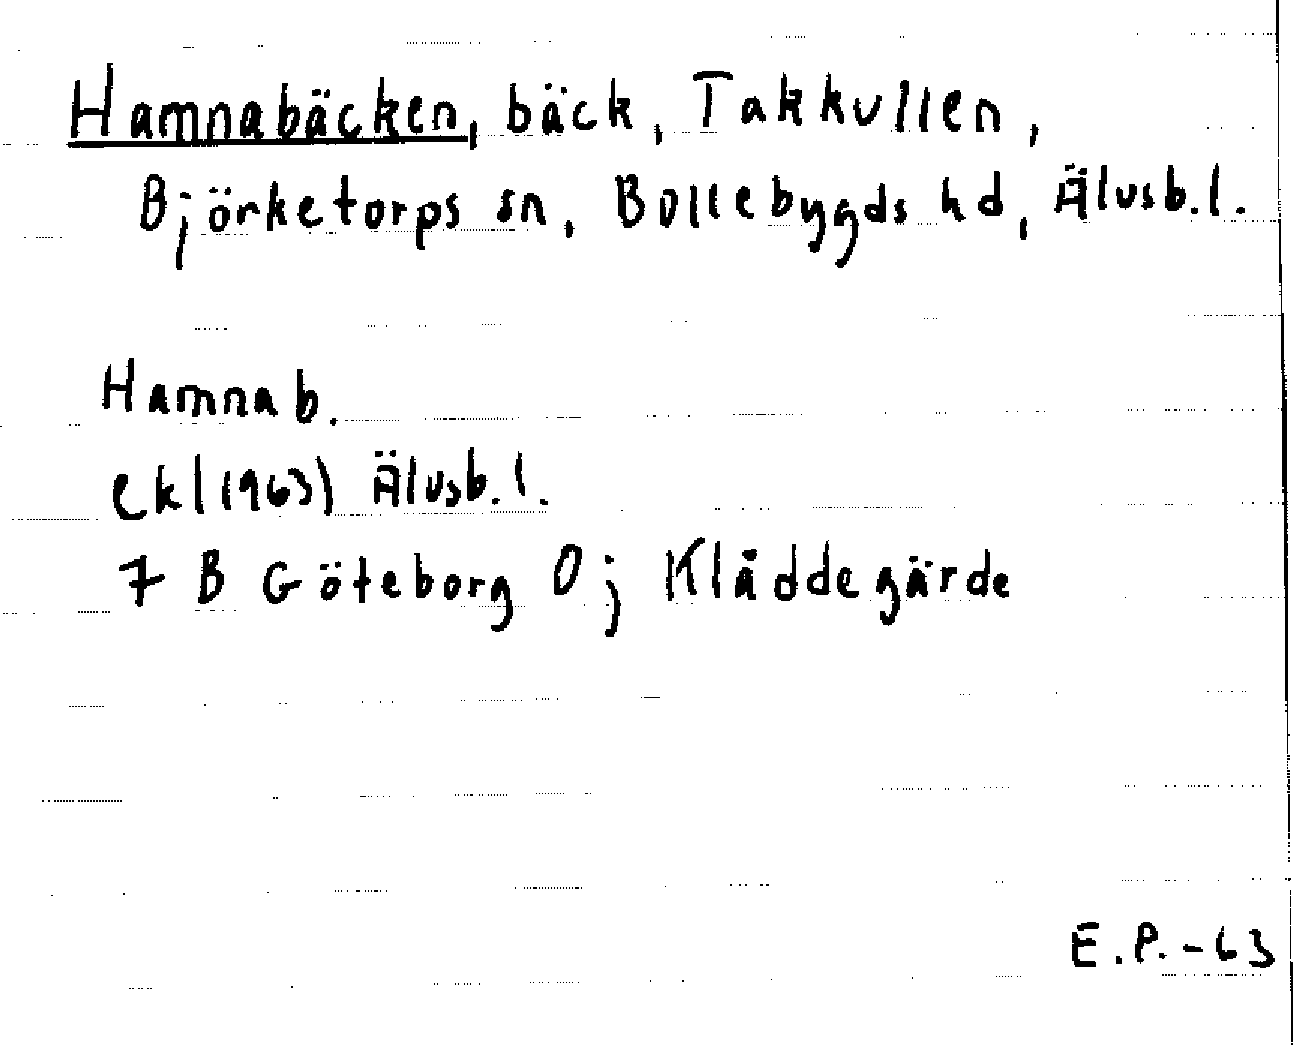 Hamnabäcken, bäck, Takkullen,
Björketorps sn, Bollebygds hd, Älvsb.l.
Hamnab.
ekl(1963) Älvsb.l.
7 B Göteborg 0 j Kläddegärde
E.P.-63